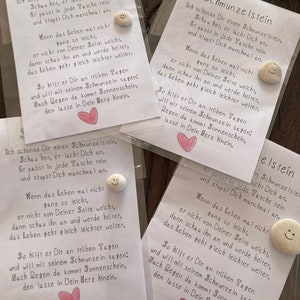 Ich schenke Dir einen Schmunzelstein
Schau her, er
Er passt in jede Tasche rein
und stupst Dich manchmal an.
Wenn das Leben mal nicht
ganz so leicht,
er nicht von Deiner Seite weicht,
dann schau ihn an und werde heiter,
das Leben geht gleich leichter weiter.
So hilft er Dir an trüben Tagen
und will mit seinem Schmunzeln sagen:
Nach Regen da kommt Sonnenschein,
den lasse in Dein Herz hinein.
Schmunzelstein
Ich schenke Dir einen Schmunzelstein
Schau her, er
Er passt in jede Tasche rein
und stupst Dich manchmal an.
Wenn das Leben mal nicht
ganz so leicht,
er nicht von Deiner Seite weicht,
dann schau ihn an und werde heiter,
das Leben geht gleich leichter weiter.
So hilft er Dir an trüben Tagen
und will mit seinem Schmunzeln sagen:
Nach Regen da kommt Sonnenschein,
den lasse in Dein Herz hinein.
Ich schenke Dir einen Schmunzelstein
Schau her, er
Er passt in jede Tasche rein
und stupst Dich manchmal an.
Wenn das Leben mal nicht
ganz so leicht,
er nicht von Deiner Seite weicht,
dann schau ihn an und werde heiter,
das Leben geht gleich leichter weiter.
So hilft er Dir an trüben Tagen
und will mit seinem Schmunzeln sagen:
Nach Regen da kommt Sonnenschein,
den lasse in Dein Herz hinein.
einen Schmunzelstein
jede Tasche rein
Dich manchmal an.
Wenn das Leben mal nicht
ganz so leicht,
er nicht von Deiner Seite weicht,
dann schau ihn an und werde heiter,
das Leben geht gleich leichter weiter.
So hilft er Dir an trüben Tagen
und will mit seinem Schmunzeln sagen:
Nach Regen da kommt Sonnenschein,
den lasse in Dein Herz hinein.